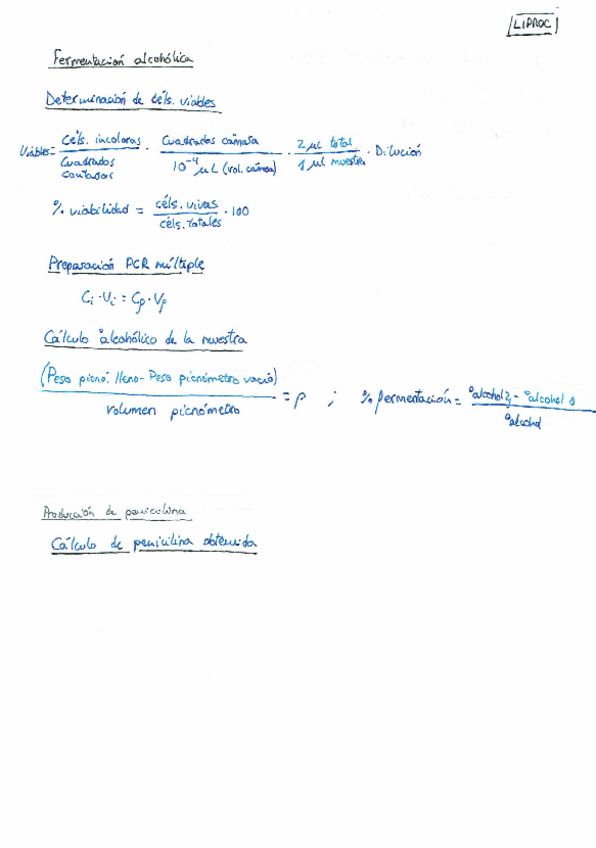 LIPROC
Fermentación alcohólica
Determinación de céls. viables
Viables = Céls. incoloras / Cuadrados contados · Cuadrados cámara / 10⁻⁴ µL (vol. cámara) · 2 µL total / 1 µL muestra · Dilución
% viabilidad = céls. vivas / céls. totales · 100
Preparación PCR múltiple
Ci · Vi = Cf · Vf
Cálculo °alcohólico de la muestra
(Peso picnó. lleno - Peso picnómetro vació) / volumen picnómetro = ρ ; % fermentación = °alcohol - °alcohol / °alcohol
Producción de penicilina
Cálculo de penicilina obtenida